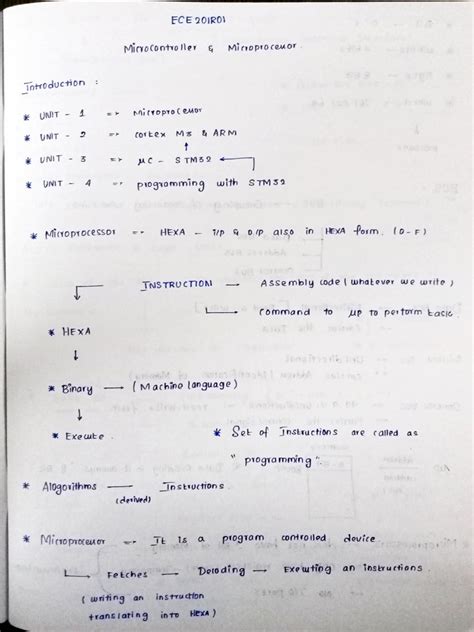 ECE201R01
Microcontroller & Microprocessor.
Introduction :
* UNIT - 1 => Microprocessor
* UNIT - 2 => cortex M3 & ARM
↑
* UNIT - 3 => µC - STM32 ←
* UNIT - 4 => programming with STM32
* Microprocessor => HEXA - I/P & O/P also in HEXA form. (0-F)
INSTRUCTION → Assembly code (whatever we write)
→ command to µp to perform task.
* HEXA
↓
* Binary — (Machine language)
↓
* Execute. * Set of Instructions are called as
"programming".
* Alogorithms → Instructions.
(derived)
* Microprocessor => It is a program controlled device
→ Fetches → Decoding → Executing an instructions
(writing an instruction
translating into HEXA)